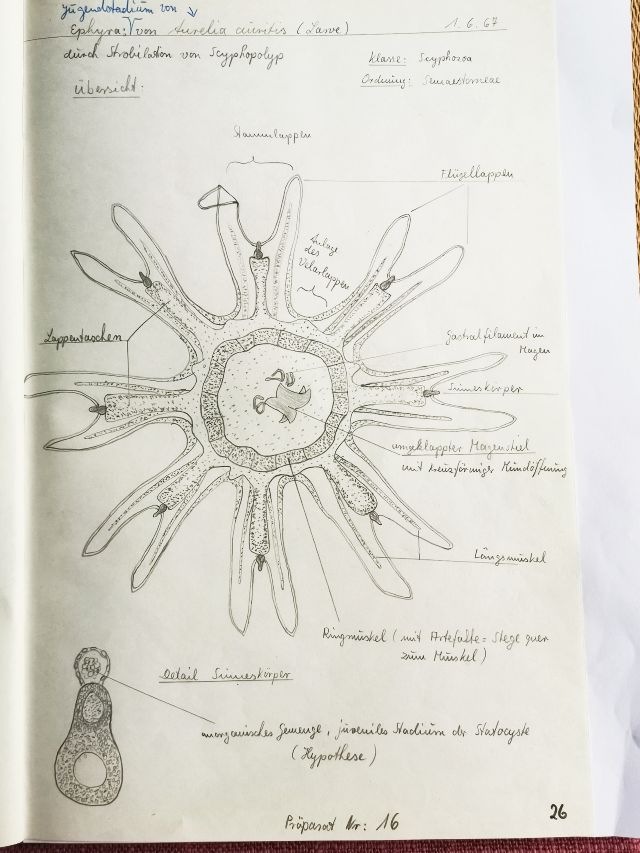 Jugendstadium von
Ephyra: von Aurelia auritis (Larve) 1.6.67
durch Strobilation von Scyphopolyp
Klasse: Scyphozoa
Ordnung: Semaestomeae
Übersicht:
Stammlappen
Flügellappen
Anlage
des
Velarlappen
Lappentaschen
Gastralfilament im
Magen
Sinneskörper
umgeklappter Magenstiel
mit kreuzförmiger Mundöffnung
Längsmuskel
Ringmuskel (mit Artefakte = Stege quer
zum Muskel)
Detail Sinneskörper
anorganisches Gemenge, juveniles Stadium der Statocyste
(Hypothese)
Präparat Nr: 16
26